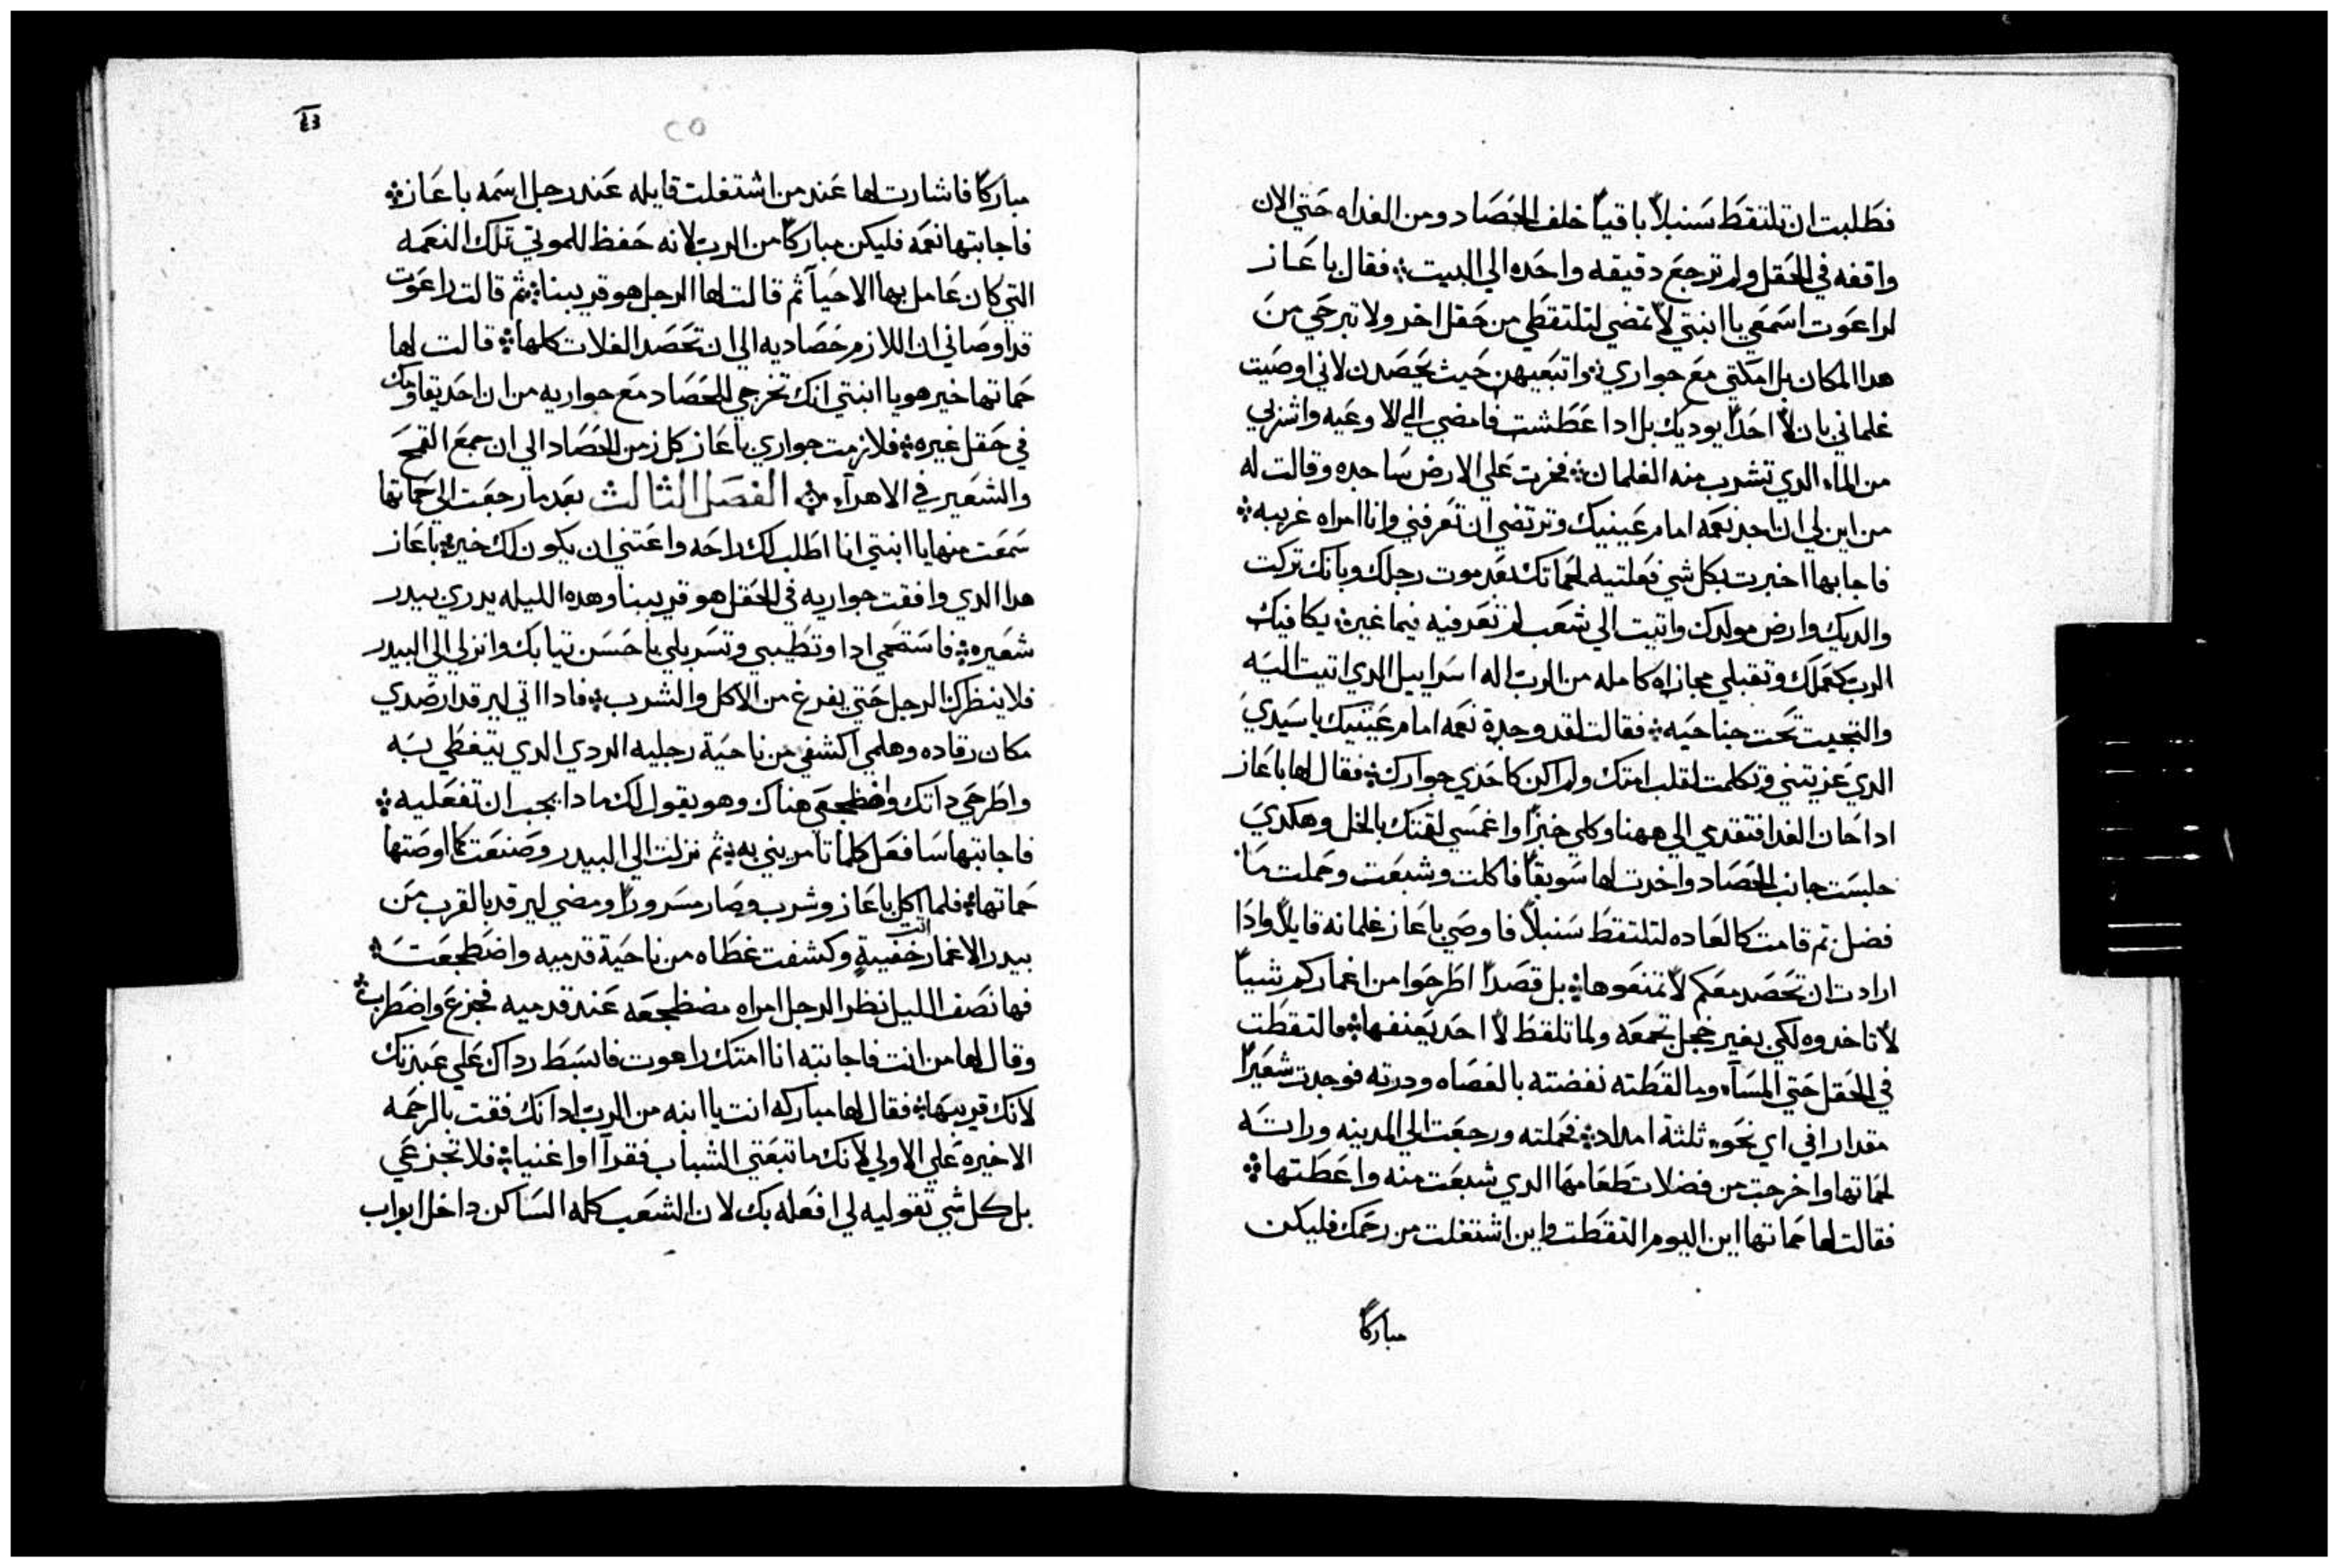 فطلبت ان تلتقط سنبلاً باقياً خلف الحصاد ومن الغداه حتي الان
واقفه في الحقل ولم ترجع دقيقه واحده الي البيت فقال باعاز
لراعوت اسمعي يا ابنتي لا تمضي لتلتقطي من حقل اخر ولا تبرحي من
هدا المكان بل امكتي مع جواري واتبعيهن حيث يحصدن لاني اوصيت
غلماني بان لا احداً يوديك بل ادا عطشت فامضي الي الاوعيه واشربي
من الماء الدي تشرب منه الغلمان فخرت علي الارض ساجده وقالت له
من اين لي ان اجد نعمه امام عينيك وترتضي ان تعرفني وانا امراه غريبه
فاجابها اخبرت بكل شي فعلتيه لحماتك بعد موت رجلك وبانك تركت
والديك وارض مولدك واتيت الي شعب لم تعرفيه فيما غبر يكافيك
الرب كعملك وتقبلي مجازاه كامله من الرب اله اسراييل الدي اتيت اليه
والتجيت تحت جناحيه فقالت لقد وجدة نعمه امام عينيك يا سيدي
الدي عزيتني وتكلمت لقلب امتك ولم اكن كاحدي جوارك فقال لها باعاز
ادا حان الغدا فتقدمي الي ههنا وكلي خبزاً واغمسي لقمتك بالخل وهكدي
جلست جانب الحصاد واخدت لها سويقاً فاكلت وشبعت وحملت ما
فضل تم قامت كالعاده لتلتقط سنبلاً فاوصي باعاز غلمانه قايلاً وادا
ارادت ان تحصد معكم لا تمنعوها بل قصداً اطرحوا من اغماركم شياً
لا تاخدوه لكي بغير خجل تجمعه ولما تلقط لا احد يعنفها فالتقطت
في الحقل حتي المساء وما لقطته نفضته بالعصاه ودرته فوجدت شعيراً
مقدار افي اي نحو ثلثة امداد فحملته ورجعت الي المدينه وراته
لحماتها واخرجت من فضلات طعامها الدي شبعت منه واعطتها
فقالت لها حماتها اين اليوم التقطت واين اشتغلت من رحمك فليكن
مباركاً
٤٣
٢٥
مباركاً فاشارت لها عند من اشتغلت قايله عند رجل اسمه باعاز
فاجابتها نعمه فليكن مباركاً من الرب لانه حفظ للموتي تلك النعمه
التي كان عامل بها الاحيآ ثم قالت لها الرجل هو قريبنا ثم قالت راعوت
قد اوصاني ان اللازم حصاديه الي ان تحصد الغلات كلها قالت لها
حماتها خير هو يا ابنتي انك تخرجي للحصاد مع جواريه من ان احد يقاومك
في حقل غيره فلازمت جواري باعاز كل زمن الحصاد الي ان جمع القمح
والشعير في الاهراء الفصل الثالث بعد ما رجعت الي حماتها
سمعت منها يا ابنتي انا اطلب لك راحه واعتني ان يكون لك خير باعاز
هدا الدي وافقت جواريه في الحقل هو قريبنا وهده الليله يدري بيدر
شعيره فاستحمي ادا وتطيبي وتسربلي باحسن تيابك وانزلي الي البيدر
فلا ينظرك الرجل حتي يفرغ من الاكل والشرب فادا اتي ليرقد ارصدي
مكان رقاده وهلمي اكشفي من ناحية رجليه الردي الدي يتغطي به
واطرحي داتك واضطجعي هناك وهو يقول لك مادا يجب ان تفعليه
فاجابتها سافعل كلما تامريني به ثم نزلت الي البيدر وصنعت كما اوصتها
حماتها فلما اكل باعاز وشرب وصار مسروراً ومضي ليرقد بالقرب من
بيدر الاغمار اتت خفيةٍ وكشفت غطاه من ناحية قدميه واضطجعت
فها نصف الليل نظر الرجل امراه مضطجعه عند قدميه فجزع واضطرب
وقال لها من انت فاجابته انا امتك راعوت فابسط رداك علي عبدتك
لانك قريبها فقال لها مباركه انت يا ابنه من الرب ادا نك فقت بالرحمه
الاخيره علي الاولي لانك ما تبعتي الشباب فقرآ او اغنيا فلا تجزعي
بل كل شي تقوليه لي افعله بك لان الشعب كله الساكن داخل ابواب